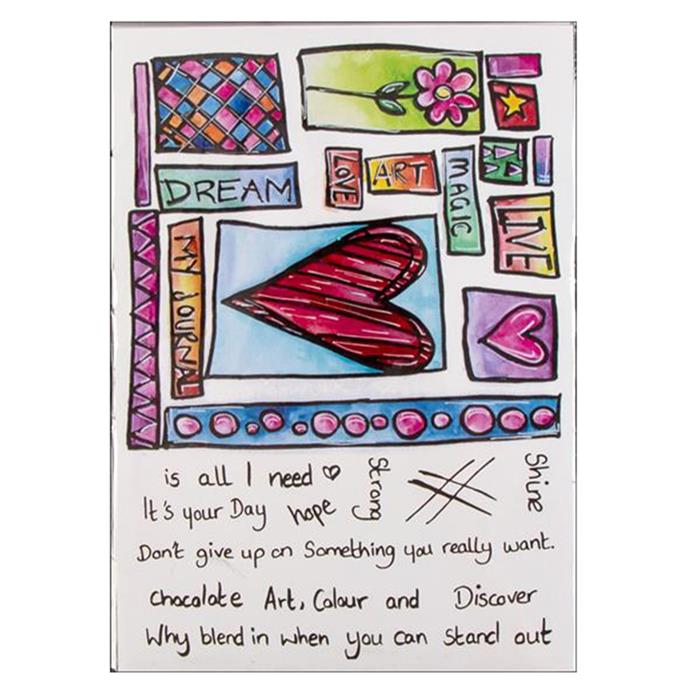 DREAM
LOVE
ART
MAGIC
LIVE
MY JOURNAL
is all I need
Strong
Shine
It's your Day hope
Don't give up on Something you really want.
chocolate Art, Colour and Discover
Why blend in when you can stand out